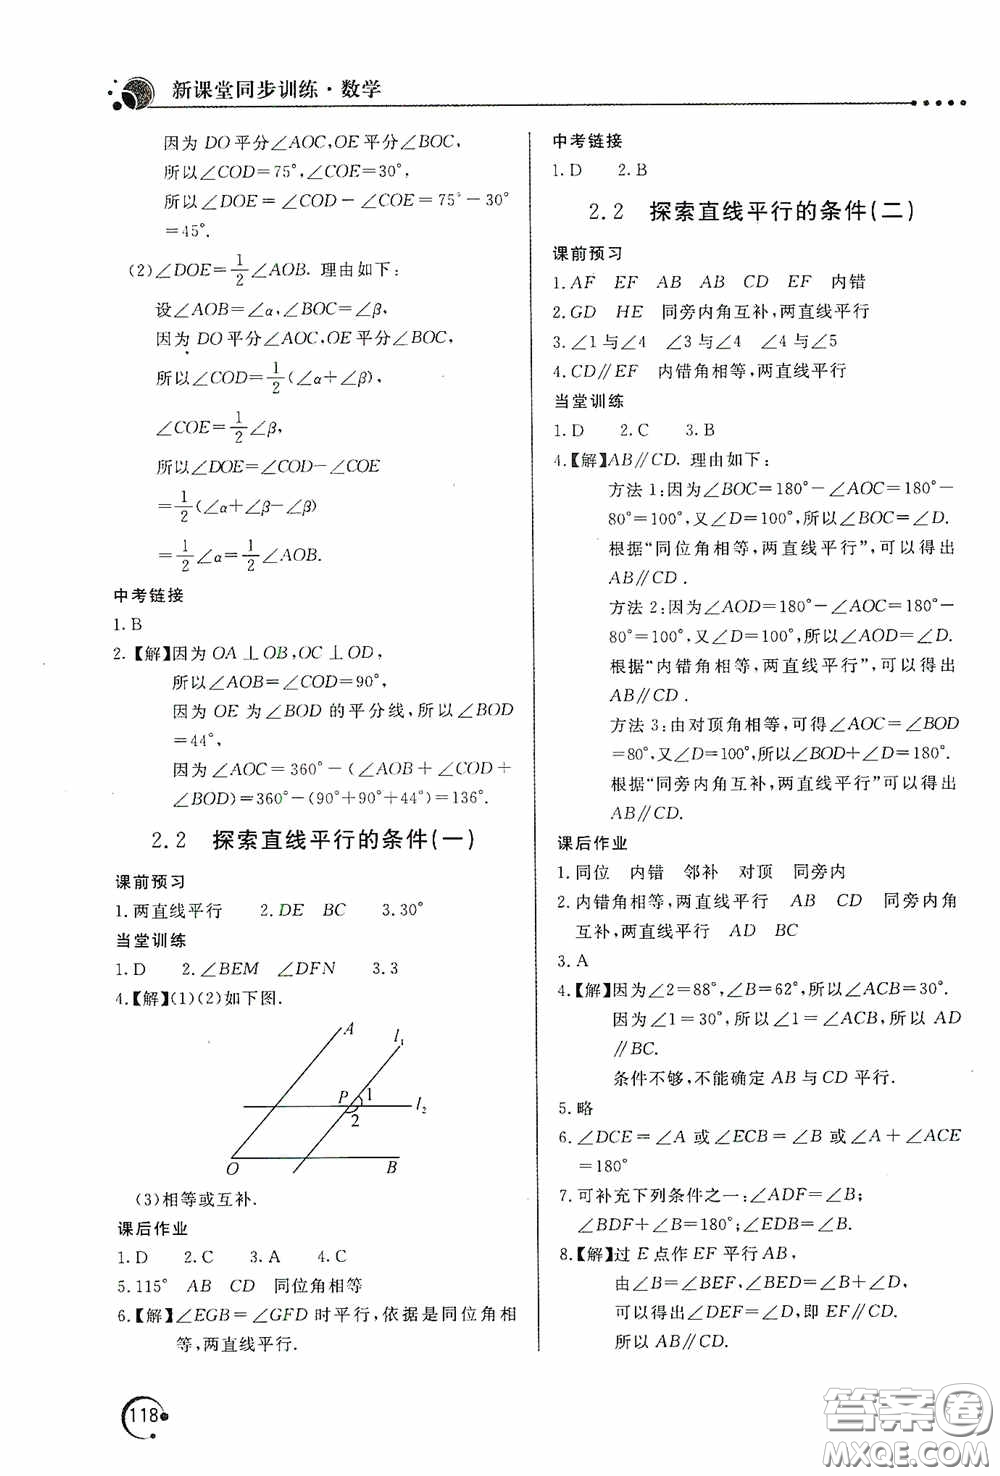 新课堂同步训练·数学
因为DO平分∠AOC,OE平分∠BOC,
所以∠COD=75°,∠COE=30°,
所以∠DOE=∠COD-∠COE=75°-30°
=45°.
(2)∠DOE=1/2∠AOB. 理由如下:
设∠AOB=∠α,∠BOC=∠β,
因为DO平分∠AOC,OE平分∠BOC,
所以∠COD=1/2(∠α+∠β),
∠COE=1/2∠β,
所以∠DOE=∠COD-∠COE
=1/2(∠α+∠β-∠β)
=1/2∠α=1/2∠AOB.
中考链接
1.B
2.【解】因为OA⊥OB,OC⊥OD,
所以∠AOB=∠COD=90°,
因为OE为∠BOD的平分线,所以∠BOD
=44°,
因为∠AOC=360°-(∠AOB+∠COD+
∠BOD)=360°-(90°+90°+44°)=136°.
2.2 探索直线平行的条件(一)
课前预习
1.两直线平行 2.DE BC 3.30°
当堂训练
1.D 2.∠BEM ∠DFN 3.3
4.【解】(1)(2)如下图.
A
l₁
P 1
l₂
2
O B
(3)相等或互补.
课后作业
1.D 2.C 3.A 4.C
5.115° AB CD 同位角相等
6.【解】∠EGB=∠GFD时平行,依据是同位角相
等,两直线平行.
118
中考链接
1.D 2.B
2.2 探索直线平行的条件(二)
课前预习
1.AF EF AB AB CD EF 内错
2.GD HE 同旁内角互补,两直线平行
3.∠1与∠4 ∠3与∠4 ∠4与∠5
4.CD∥EF 内错角相等,两直线平行
当堂训练
1.D 2.C 3.B
4.【解】AB∥CD. 理由如下:
方法1:因为∠BOC=180°-∠AOC=180°-
80°=100°,又∠D=100°,所以∠BOC=∠D.
根据“同位角相等,两直线平行”,可以得出
AB∥CD.
方法2:因为∠AOD=180°-∠AOC=180°-
80°=100°,又∠D=100°,所以∠AOD=∠D.
根据“内错角相等,两直线平行”,可以得出
AB∥CD.
方法3:由对顶角相等,可得∠AOC=∠BOD
=80°,又∠D=100°,所以∠BOD+∠D=180°.
根据“同旁内角互补,两直线平行”,可以得出
AB∥CD.
课后作业
1.同位 内错 邻补 对顶 同旁内
2.内错角相等,两直线平行 AB CD 同旁内角
互补,两直线平行 AD BC
3.A
4.【解】因为∠2=88°,∠B=62°,所以∠ACB=30°.
因为∠1=30°,所以∠1=∠ACB,所以AD
∥BC.
条件不够,不能确定AB与CD平行.
5.略
6.∠DCE=∠A或∠ECB=∠B或∠A+∠ACE
=180°
7.可补充下列条件之一:∠ADF=∠B;
∠BDF+∠B=180°;∠EDB=∠B.
8.【解】过E点作EF平行AB,
由∠B=∠BEF,∠BED=∠B+∠D,
可以得出∠DEF=∠D,即EF∥CD.
所以AB∥CD.
答案圈
MXQE.COM